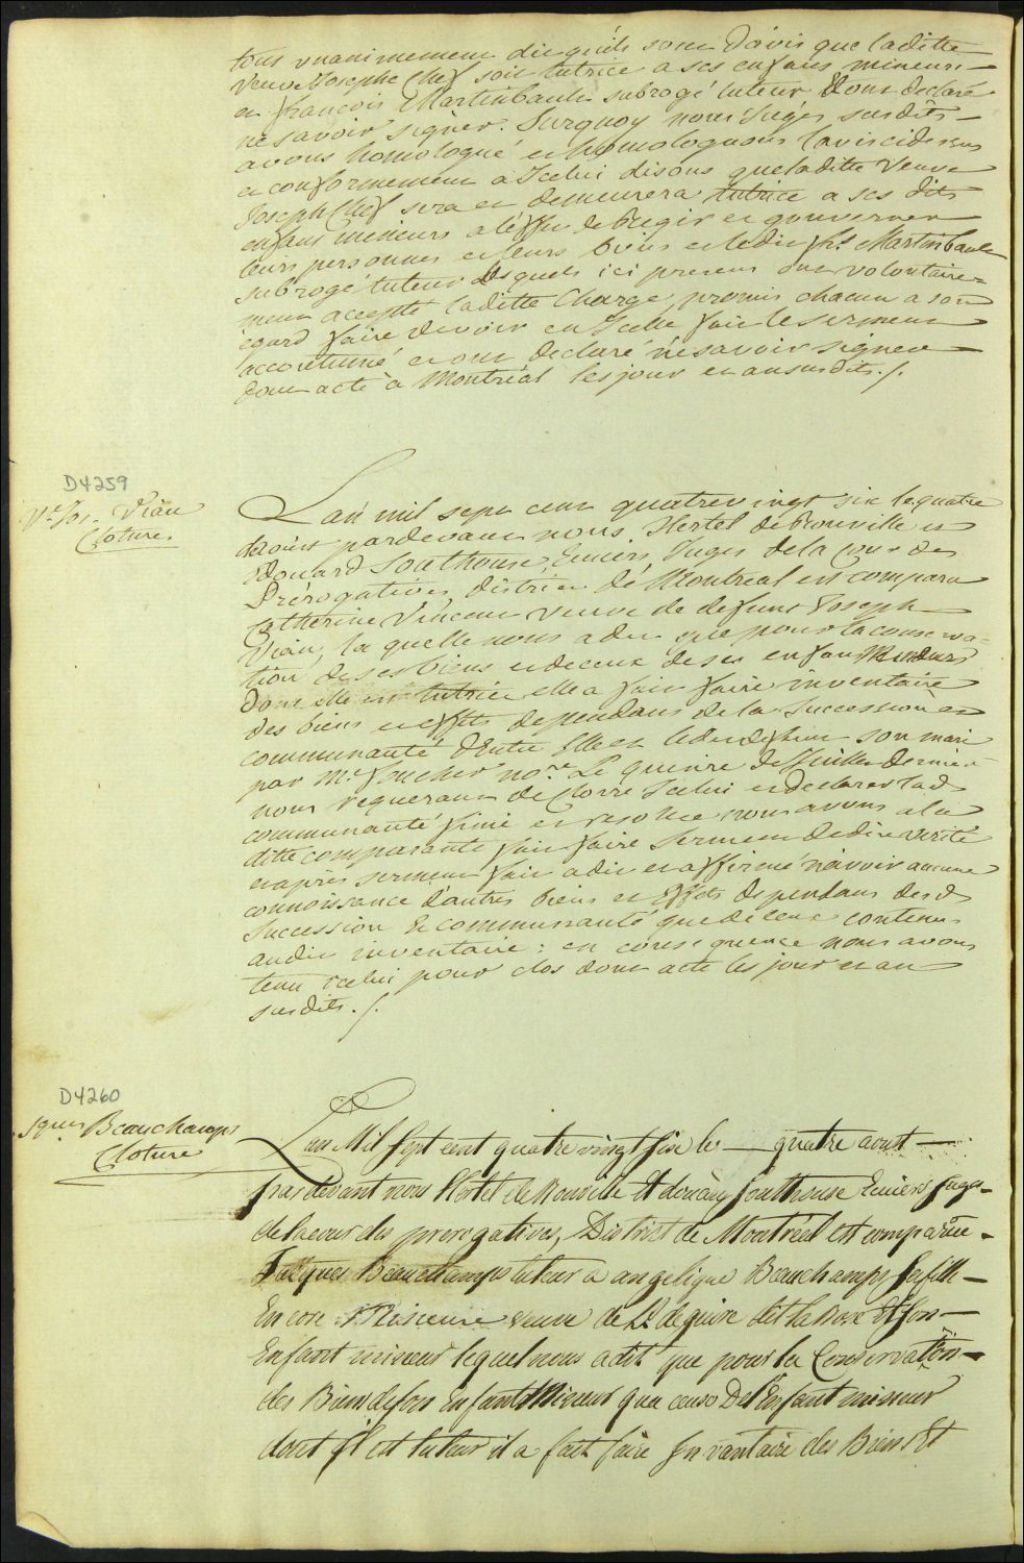 tous unanimement dit qu'ils sont d'avis que laditte
Veuve Joseph Chef soit tutrice a ses enfans mineurs
et françois Martinbault subrogé tuteur & ont declaré
ne savoir signer. Surquoy nous Juges susdits
avons homologué et homologuons l'avis cidessus
et conformement a Icelui disons que laditte Veuve
Joseph Chef sera et demeurera tutrice a ses dits
enfans mineurs a leffet de Regir et gouverner
leurs personnes et leurs biens et ledit fs. Martinbault
subrogé tuteur lesquels ici present ont volontaire-
ment accepté laditte Charge, promis chacun a son
egard faire devoir en Icelle fait le serment
accoutumé et ont declaré ne savoir signer
dont acte à Montréal les jour et an susdits ./.
D4259
Ve. Jos. Viau
Cloture
L'an mil sept cent quatrevingt six le quatre
daoust pardevant nous Hertel de Rouville et
Edouard Southouse Ecuiers, Juges de la Cour des
Prérogatives, district de Montréal est comparu
Catherine Vincent veuve de defunt Joseph
Viau, la quelle nous a dit que pour la conserva-
tion de ses biens et de ceux de ses enfans Mineurs
dont elle est tutrice elle a fait faire inventaire
des biens et effets dependans de la Succession et
communauté d'Entre Elle et ledit defunt son mari
par Me. Foucher nore. Le quinze de Juillet dernier
nous requerant de Clorre Icelui et declarer lad
communauté finie et resolue nous avons a la
ditte comparante fait faire serment de dire verité
et après serment fait a dit et affirmé n'avoir aucune
connoissance d'autres biens et Effets dependans desd
Succession & communauté que de ceux contenus
audit inventaire : en consequence nous avons
tenu icelui pour clos dont acte les jour et an
susdits ./.
D4260
Jques Beauchamps
Cloture
L'an Mil Sept cent quatre vingt six le — quatre aoust —
par devant nous Hertel de Rouville Et Edouard Southouse Ecuiers Juges
de la cour des prerogatives, District de Montréal est comparue
Jacques Beauchamps tuteur a angelique Beauchamps sa fille —
Encore Mineure veuve de Lt deguire dit la Rose Et son —
Enfant mineur lequel nous a dit que pour la Conservation —
des Biens de son Enfant Mineur que ceux De l'Enfant mineur
dont Il est tuteur il a fait faire Inventaire des Biens Et